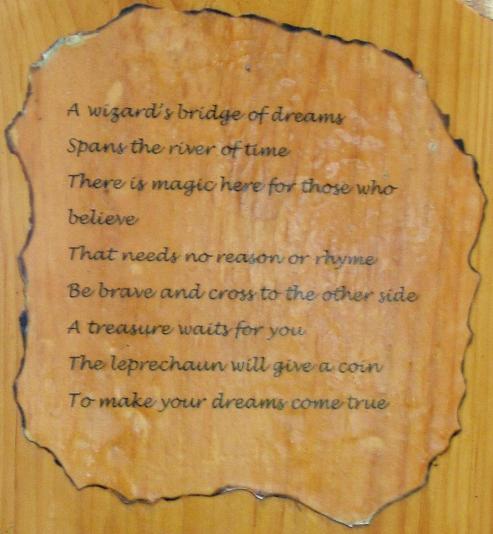 A wizard's bridge of dreams
Spans the river of time
There is magic here for those who
believe
That needs no reason or rhyme
Be brave and cross to the other side
A treasure waits for you
The leprechaun will give a coin
To make your dreams come true